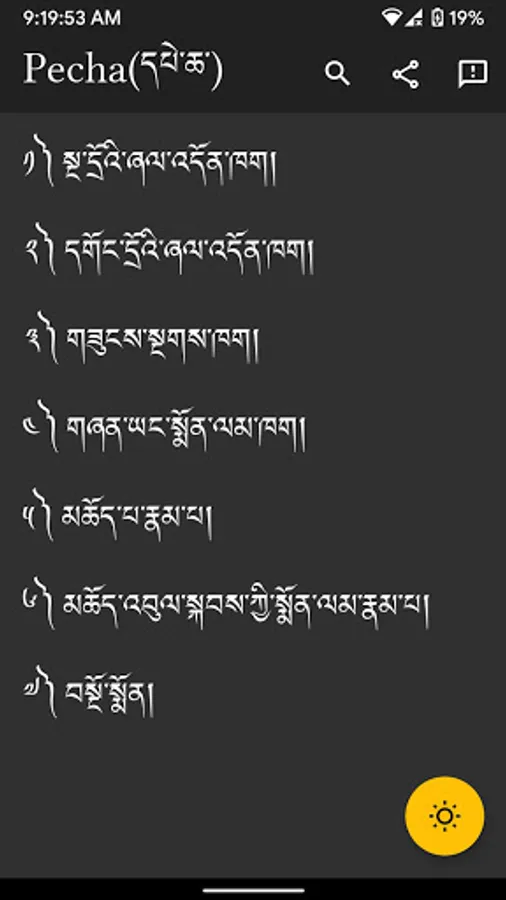 9:19:53 AM 19%
Pecha(དཔེ་ཆ་)
༡༽ སྔ་དྲོའི་ཞལ་འདོན་ཁག།
༢༽ དགོང་དྲོའི་ཞལ་འདོན་ཁག།
༣༽ གཟུངས་སྔགས་ཁག།
༤༽ གཞན་ཡང་སྨོན་ལམ་ཁག།
༥༽ མཆོད་པ་རྣམ་པ།
༦༽ མཆོད་འབུལ་སྐབས་ཀྱི་སྨོན་ལམ་རྣམ་པ།
༧༽ བསྔོ་སྨོན།